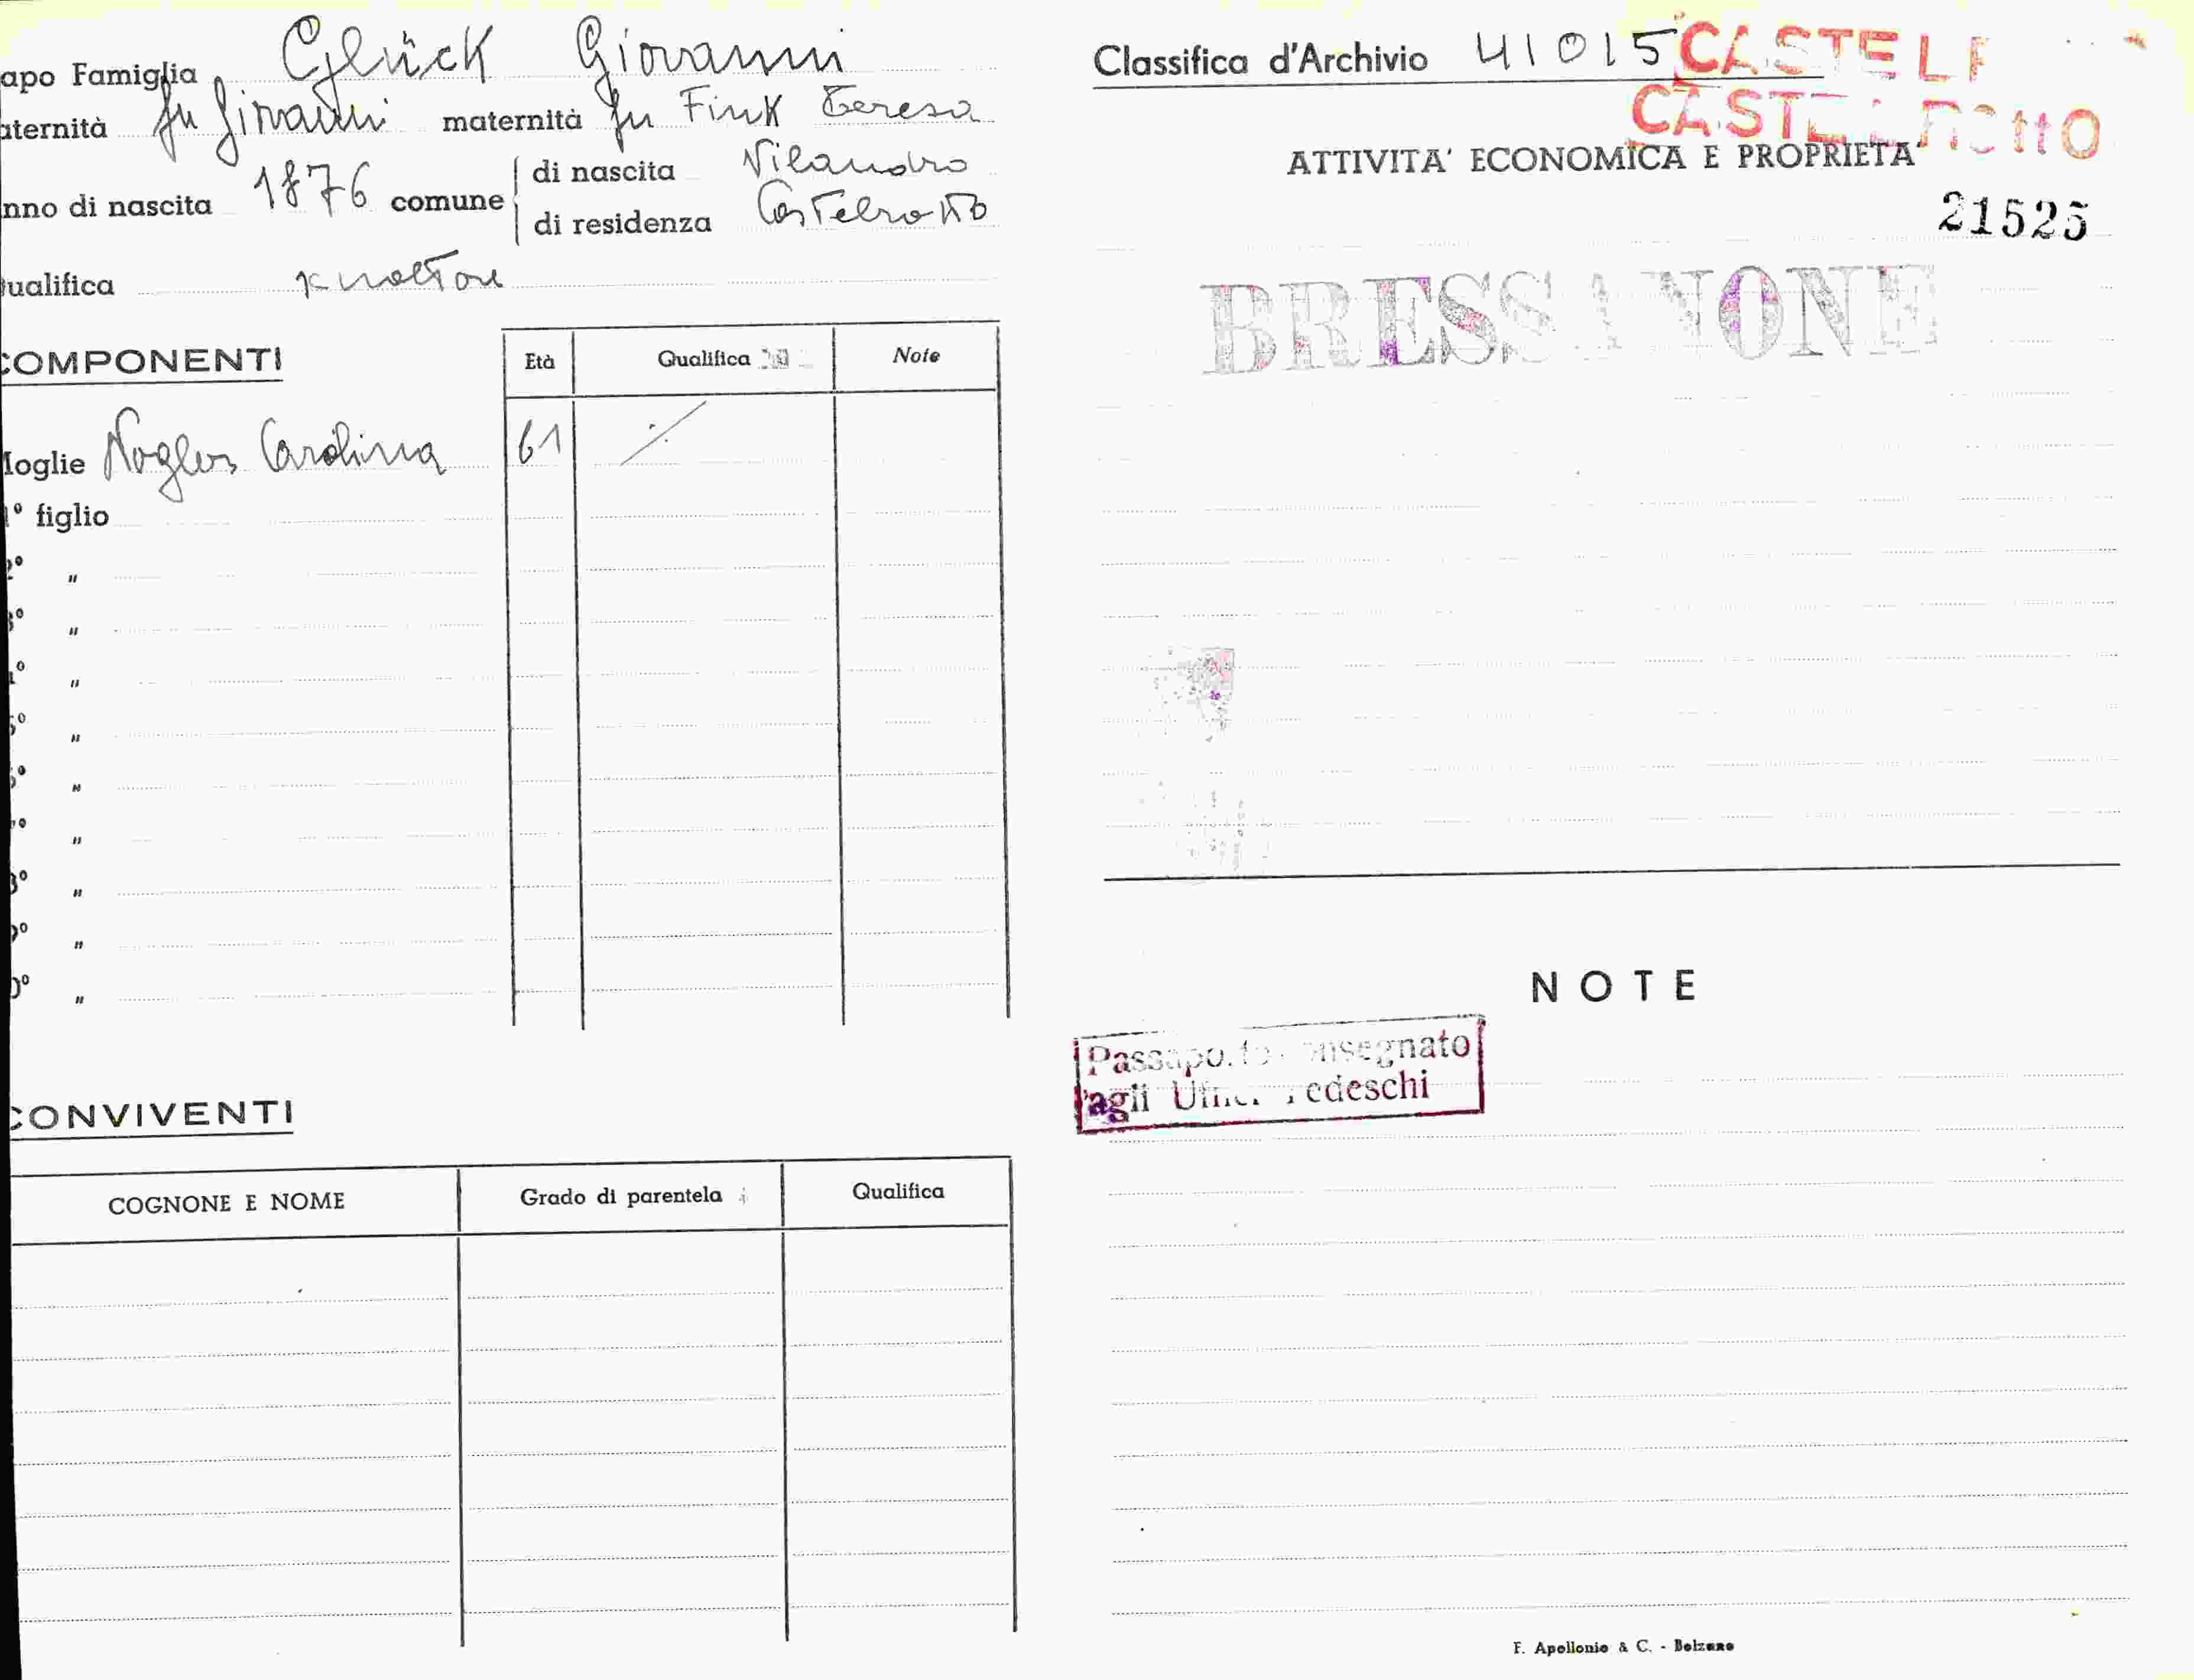 apo Famiglia Glück Giovanni
aternità fu Giovanni maternità fu Fink Teresa
nno di nascita 1876 comune di nascita Vilandro
di residenza Castelrotto
ualifica
COMPONENTI
Età Qualifica Note
Moglie Nogler Carolina 61 ⁒
1° figlio
2° "
3° "
4° "
5° "
6° "
7° "
8° "
9° "
0° "
CONVIVENTI
COGNONE E NOME Grado di parentela Qualifica
Classifica d'Archivio 41015
CASTELR
CASTELROTTO
ATTIVITA' ECONOMICA E PROPRIETA'
21525
BRESSANONE
NOTE
Passaporto consegnato
agli Uffici Tedeschi
F. Apollonio & C. - Bolzano